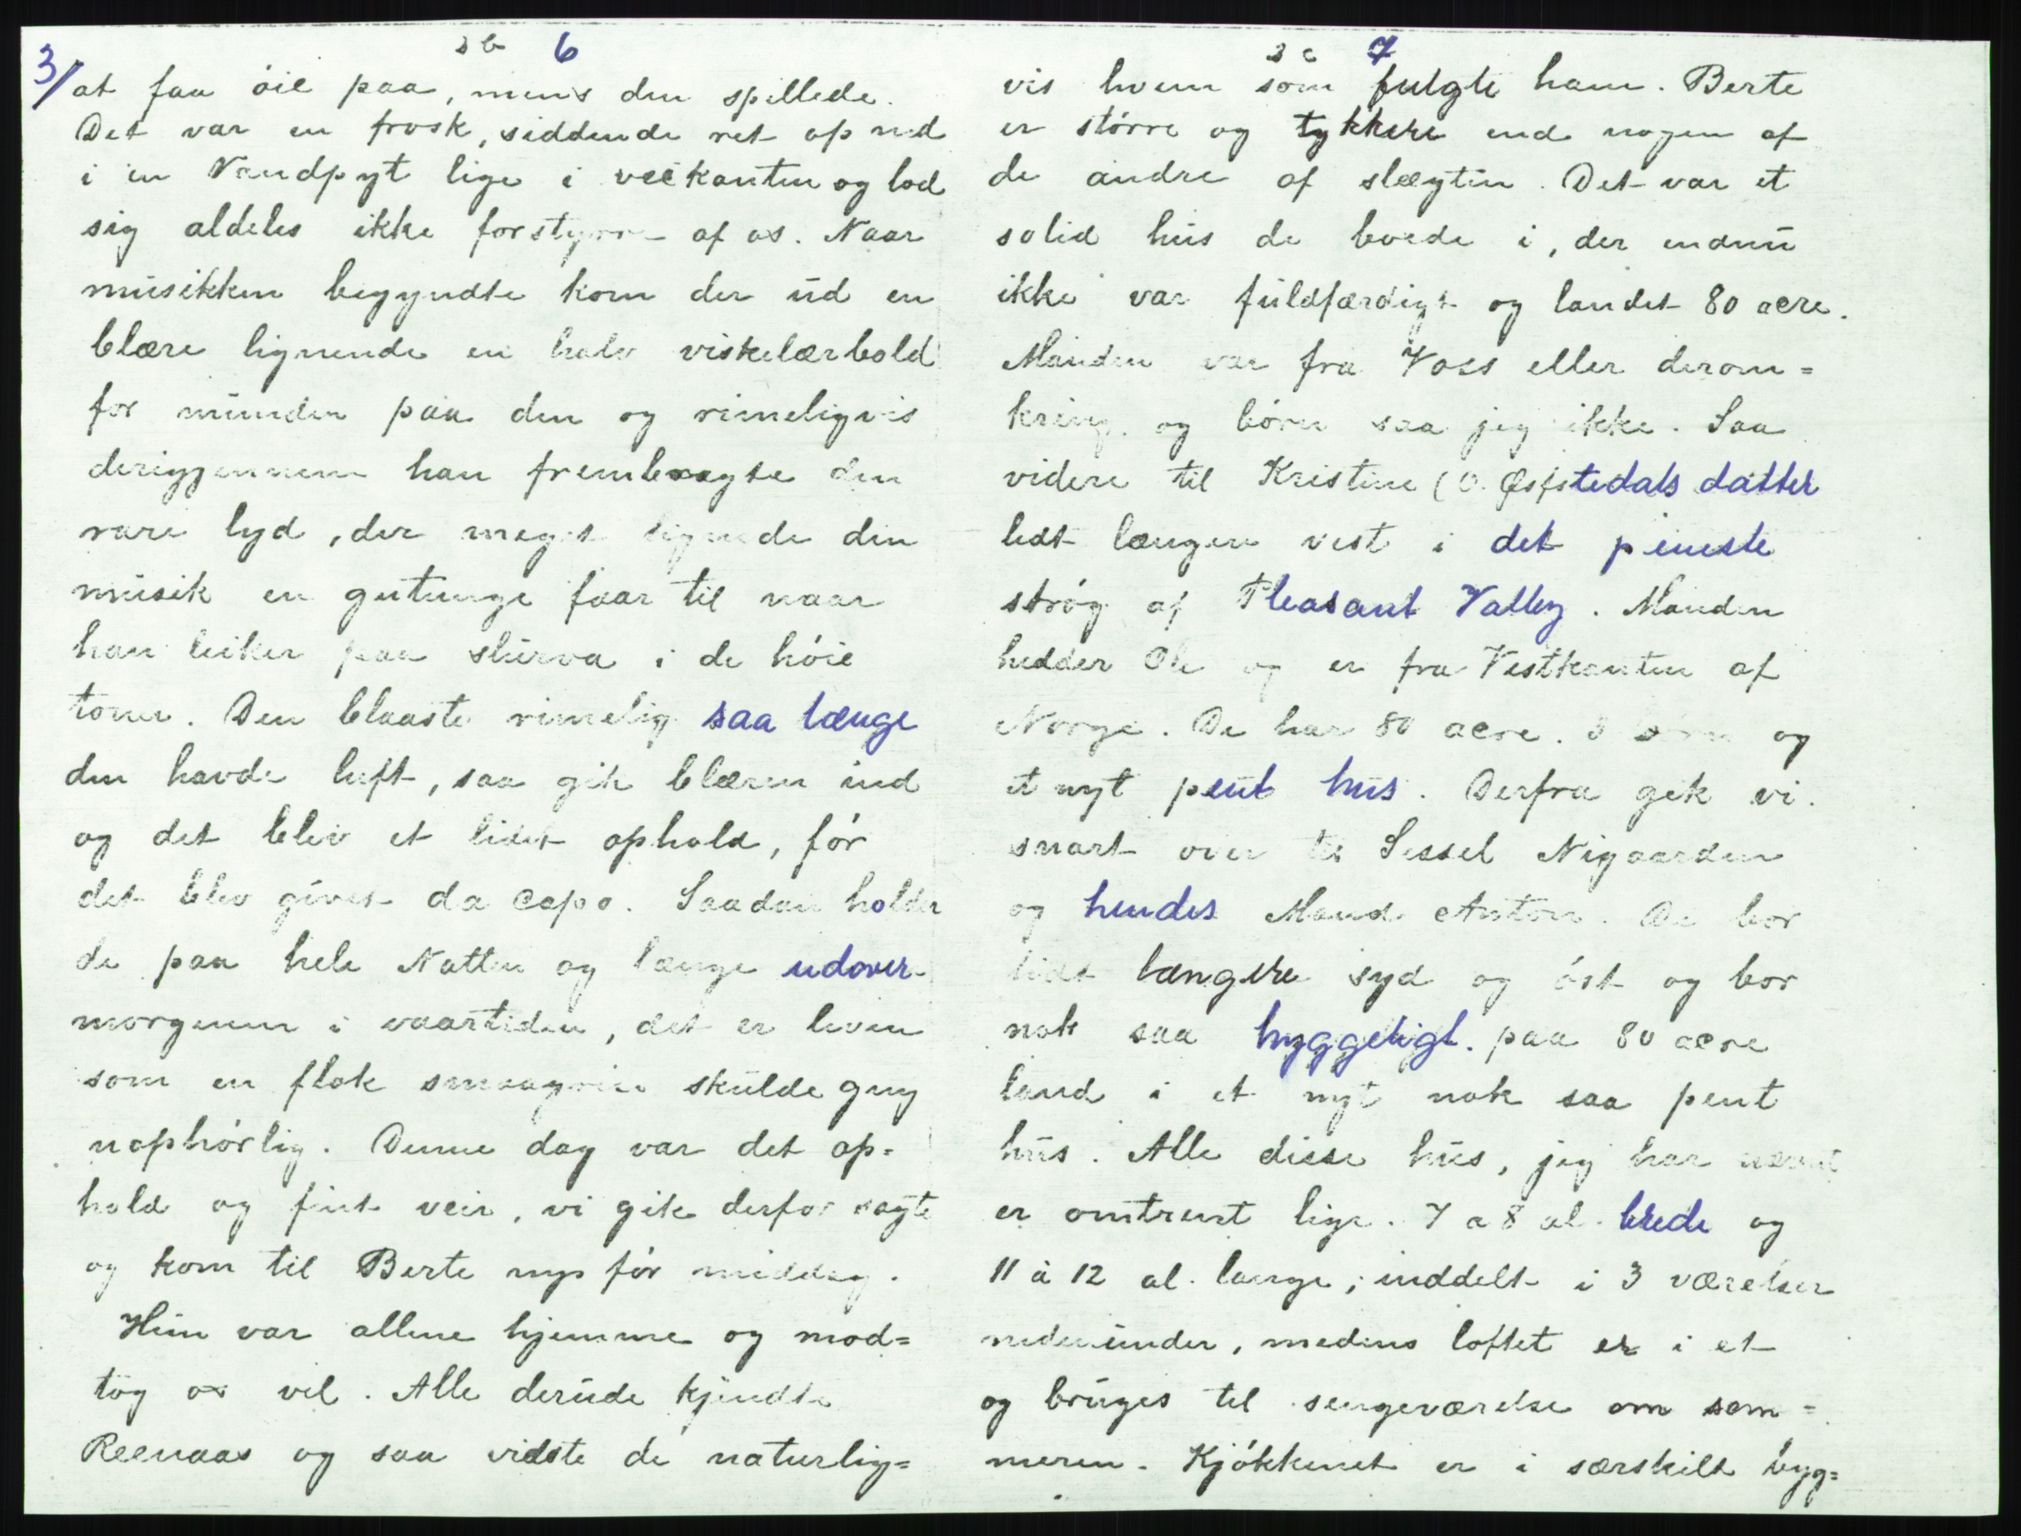 3/
3b 6
at faa öie paa, mens den spillede.
Det var en frosk, siddende ret op ned
i en Vandpyt lige i veikanten og lod
sig aldeles ikke forstyrre af os. Naar
musikken begyndte kom der ud en
blære lignende en halv viskelærbold
for munden paa den og rimeligvis
derigjennem han frembragte den
rare lyd, der meget lignede den
musik en gutunge faar til naar
han leiker paa slurva i de höie
toner. Den blaaste rimelig saa længe
den havde luft, saa gik blæren ind
og det blev et lidet ophold, för
det blev givet da capo. Saadan holder
de paa hele Natten og længe udover
morgenen i vaartiden, det er leven
som en flok smaagrise skulde gny
uophörlig. Denne dag var det op=
hold og fint veir, vi gik derfor sagte
og kom til Berte nys för middag.
Hun var allene hjemme og mod=
tog os vel. Alle derude kjendte
Reenaas og saa vidste de naturlig=
3c 7
vis hvem som fulgte ham. Berte
er större og tykkere end nogen af
de andre af slægten. Det var et
solid hus de boede i, der endnu
ikke var fuldfærdigt og landet 80 acre.
Manden var fra Voss eller derom=
kring og börn saa jeg ikke. Saa
videre til Kristine (O. Øfstedals datter
lidt længere vest i det peneste
strög af Pleasant Valley. Manden
hedder Ole og er fra Vestkanten af
Norge. De har 80 acre. og
et nyt pent hus. Derfra gik vi
snart over til Sessel Nigaarden
og hendes Mand Anton. De bor
lidt længere syd og öst og bor
nok saa hyggeligt. paa 80 acre
land i et nyt nok saa pent
hus. Alle disse hus, jeg har nævnt
er omtrent lige. 7 a 8 al. brede og
11 à 12 al. lange, inddelt i 3 værelser
nedenunder, medens loftet er i et
og bruges til sengeværelse om som=
meren. Kjökkenet er i særskilt byg=